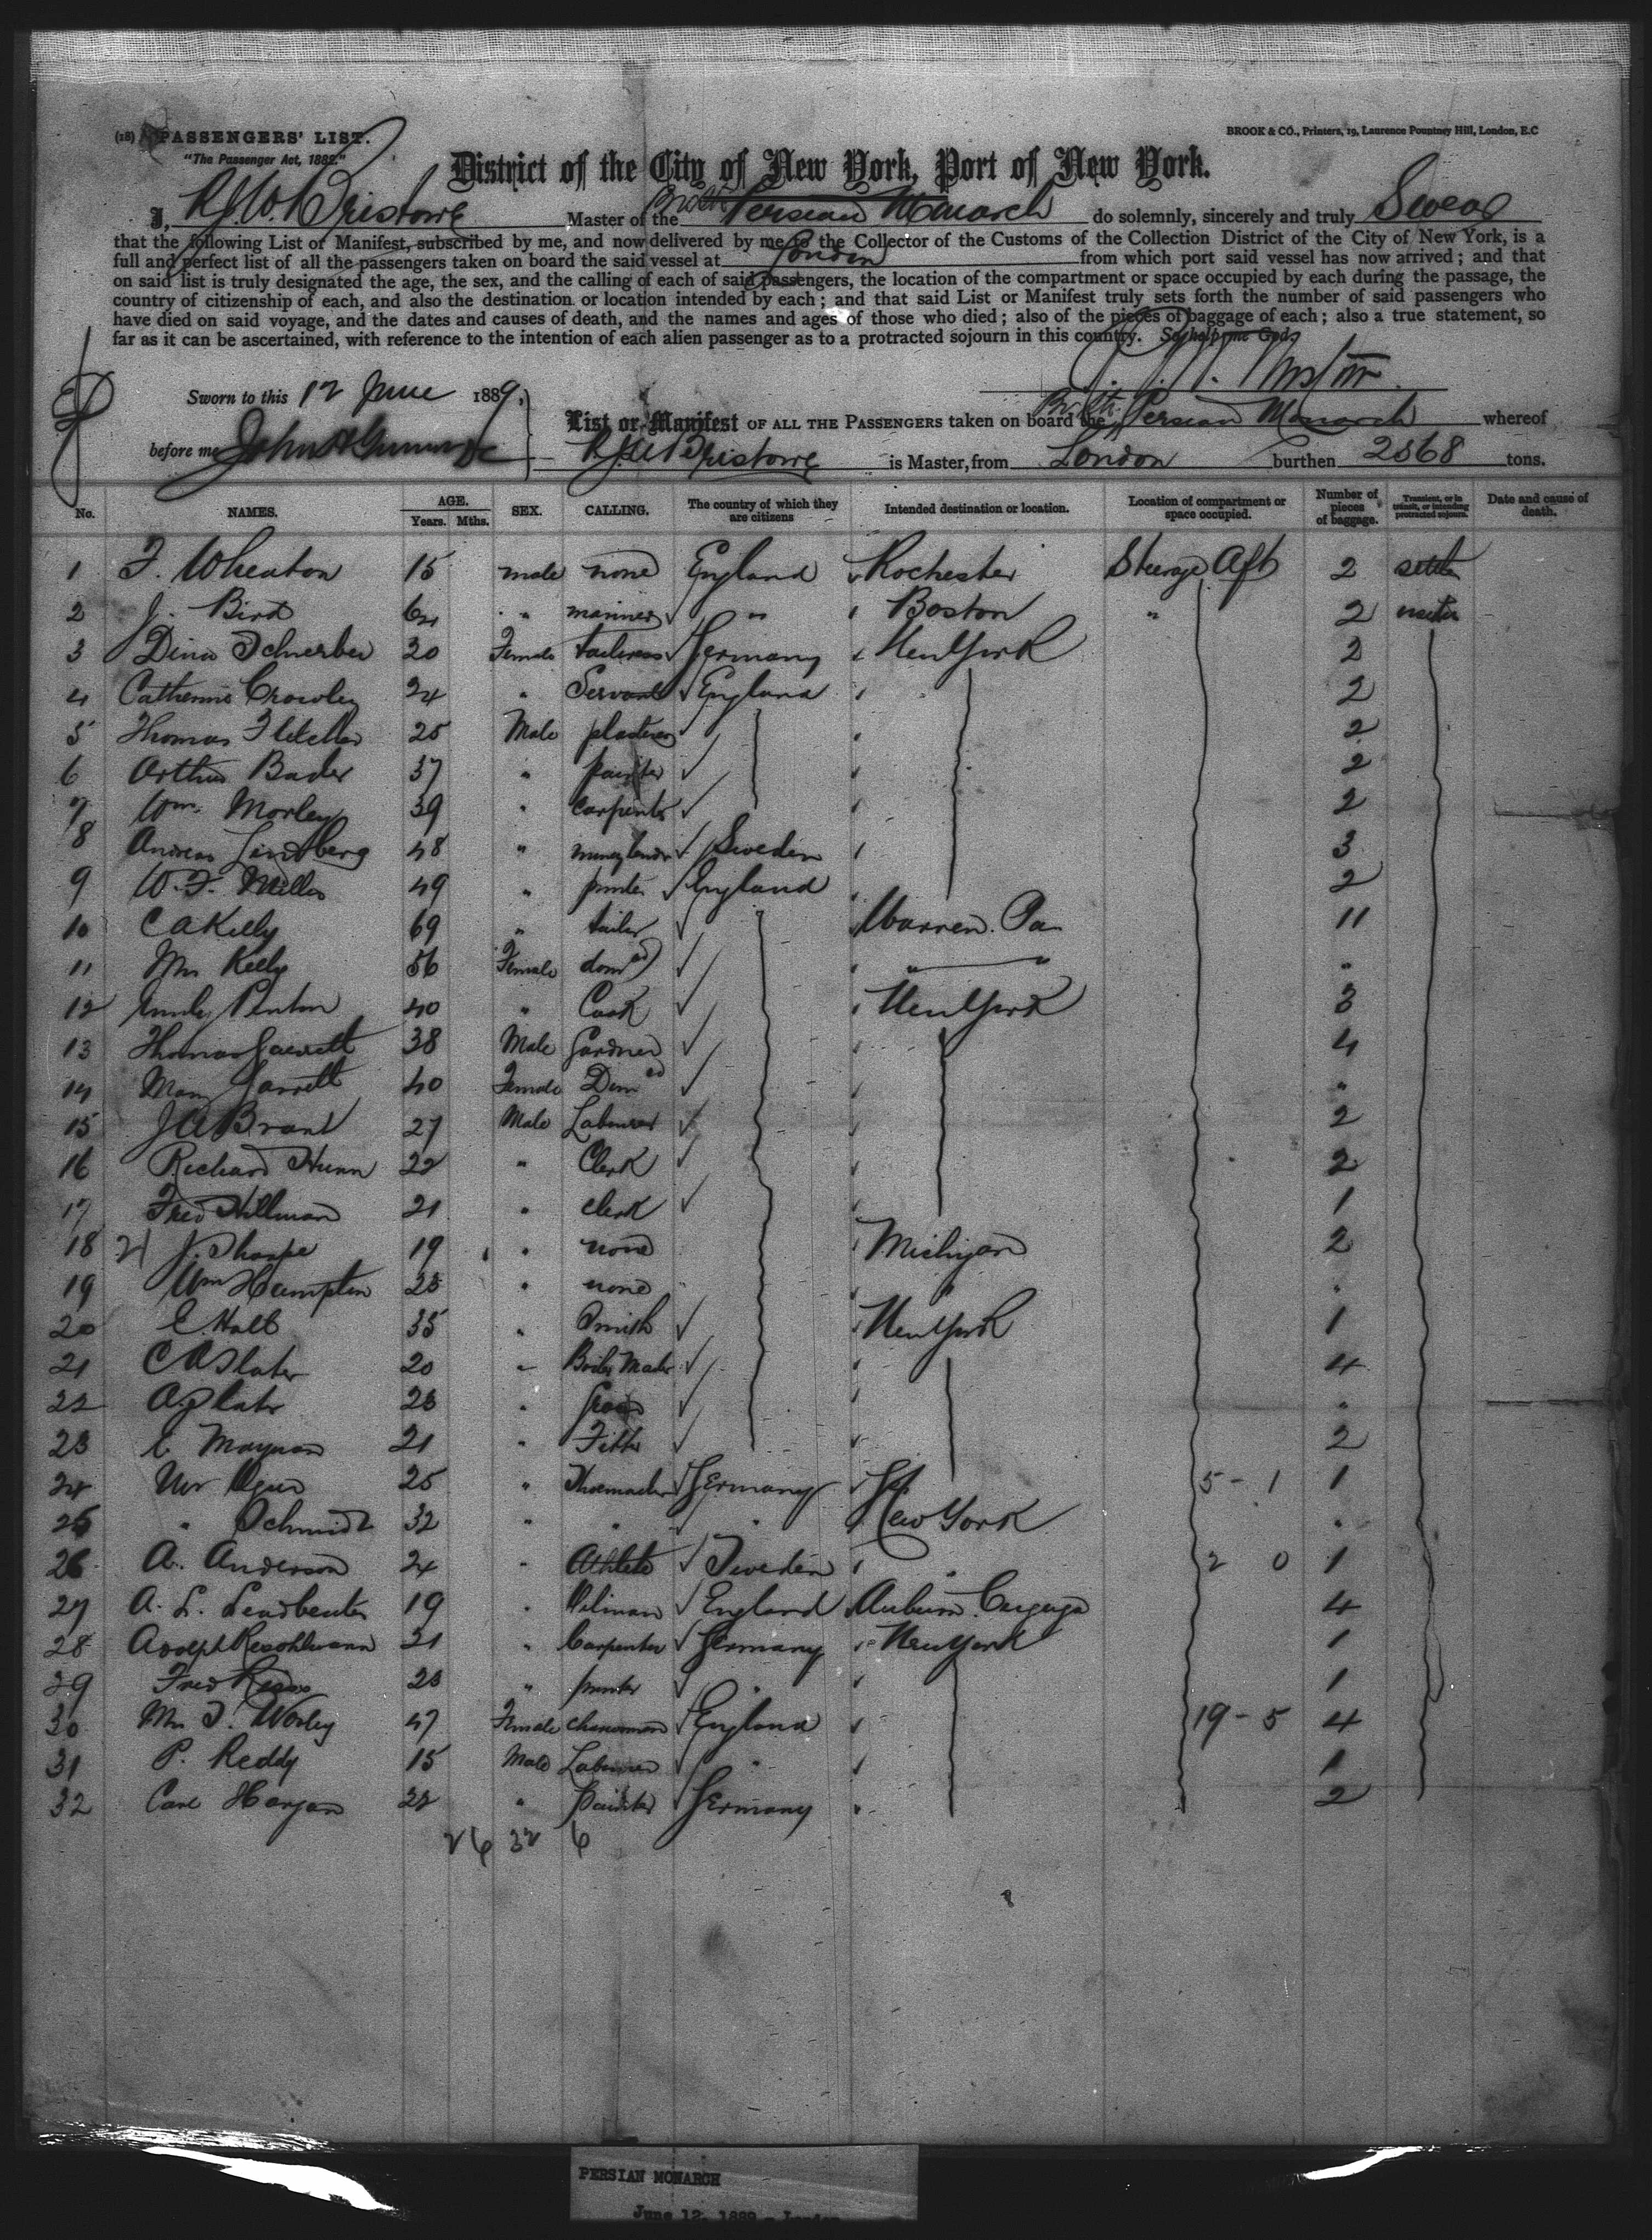 (18) PASSENGERS' LIST.
BROOK & CO., Printers, 19, Laurence Pountney Hill, London, E.C
"The Passenger Act, 1882."
District of the City of New York, Port of New York.
I, R.J.W. Bristowe Master of the Persian Monarch do solemnly, sincerely and truly Swear
that the following List or Manifest, subscribed by me, and now delivered by me to the Collector of the Customs of the Collection District of the City of New York, is a
full and perfect list of all the passengers taken on board the said vessel at London from which port said vessel has now arrived; and that
on said list is truly designated the age, the sex, and the calling of each of said passengers, the location of the compartment or space occupied by each during the passage, the
country of citizenship of each, and also the destination or location intended by each; and that said List or Manifest truly sets forth the number of said passengers who
have died on said voyage, and the dates and causes of death, and the names and ages of those who died; also of the pieces of baggage of each; also a true statement, so
far as it can be ascertained, with reference to the intention of each alien passenger as to a protracted sojourn in this country. So help me God.
Sworn to this 12 June 1889.
List or Manifest OF ALL THE PASSENGERS taken on board the Persian Monarch whereof
before me
R.J.W. Bristowe is Master, from London burthen 2568 tons.
No. NAMES. AGE. Years. Mths. SEX. CALLING. The country of which they are citizens Intended destination or location. Location of compartment or space occupied. Number of pieces of baggage. Transient, or in transit, or intending protracted sojourn. Date and cause of death.
1 F. Wheaton 15 male none England Rochester Steerage Aft 2 settler
2 J. Bird 64 " mariner " Boston " 2
3 Dina Schierber 20 Female tailoress Germany New York 2
4 Catherine Crowley 24 " Servant England 2
5 Thomas Fletcher 25 Male plasterer 2
6 Arthur Bader 37 " painter 2
7 Wm. Morley 39 " carpenter 2
8 Andreas Lindberg 48 " Sweden 3
9 W.F. Miller 49 " printer England 2
10 C A Kelly 69 " tailor Warren. Pa 11
11 Mrs Kelly 56 Female " " "
12 Penton 40 " Cook New York 3
13 Thomas Garrett 38 Male Gardner 4
14 Mary Garrett 40 Female "
15 J A Brant 27 Male Labourer 2
16 Richard Hunn 22 " Clerk 2
17 Fred Hillman 21 " clerk 1
18 21 J. Sharpe 19 " none Michigan 2
19 Wm Hampton 25 " none " "
20 E. Holt 35 " Smith New York 1
21 C A Slater 20 " Boiler Maker 4
22 A. Slater 23 " "
23 E Maynard 21 " Fitter 2
24 25 " Shoemaker Germany 5 - 1 1
25 " Schmidt 32 " " " New York "
26 A. Anderson 24 " Athlete Sweden " 2 0 1
27 A. L. Leadbeater 19 " England Auburn Cayuga 4
28 Adolph Reschlmann 21 " Carpenter Germany New York 1
29 Fred 23 " printer " 1
30 Mrs T. Worley 47 Female charwoman England 19 - 5 4
31 P. Reddy 15 Male Labourer " 1
32 Carl 22 " painter Germany 2
26 32 6
PERSIAN MONARCH
June 12, 1889 - London